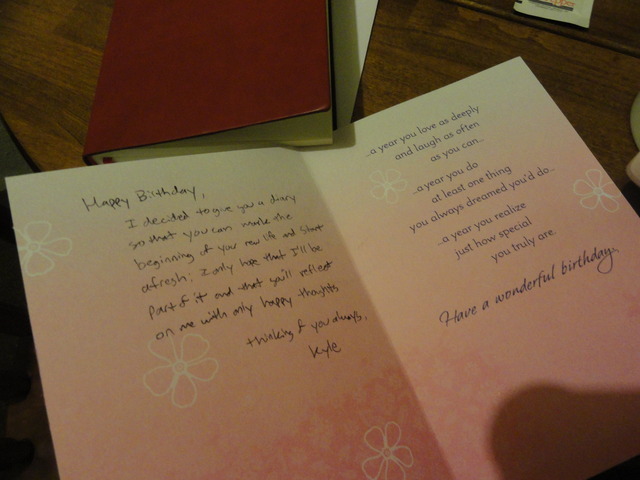 Happy Birthday,
I decided to give you a diary
so that you can mark the
beginning of your new life and start
afresh; I only hope that I'll be
part of it and that you'll reflect
on me with only happy thoughts
thinking of you always,
Kyle
...a year you love as deeply
and laugh as often
as you can...
...a year you do
at least one thing
you always dreamed you'd do...
...a year you realize
just how special
you truly are.
Have a wonderful birthday.